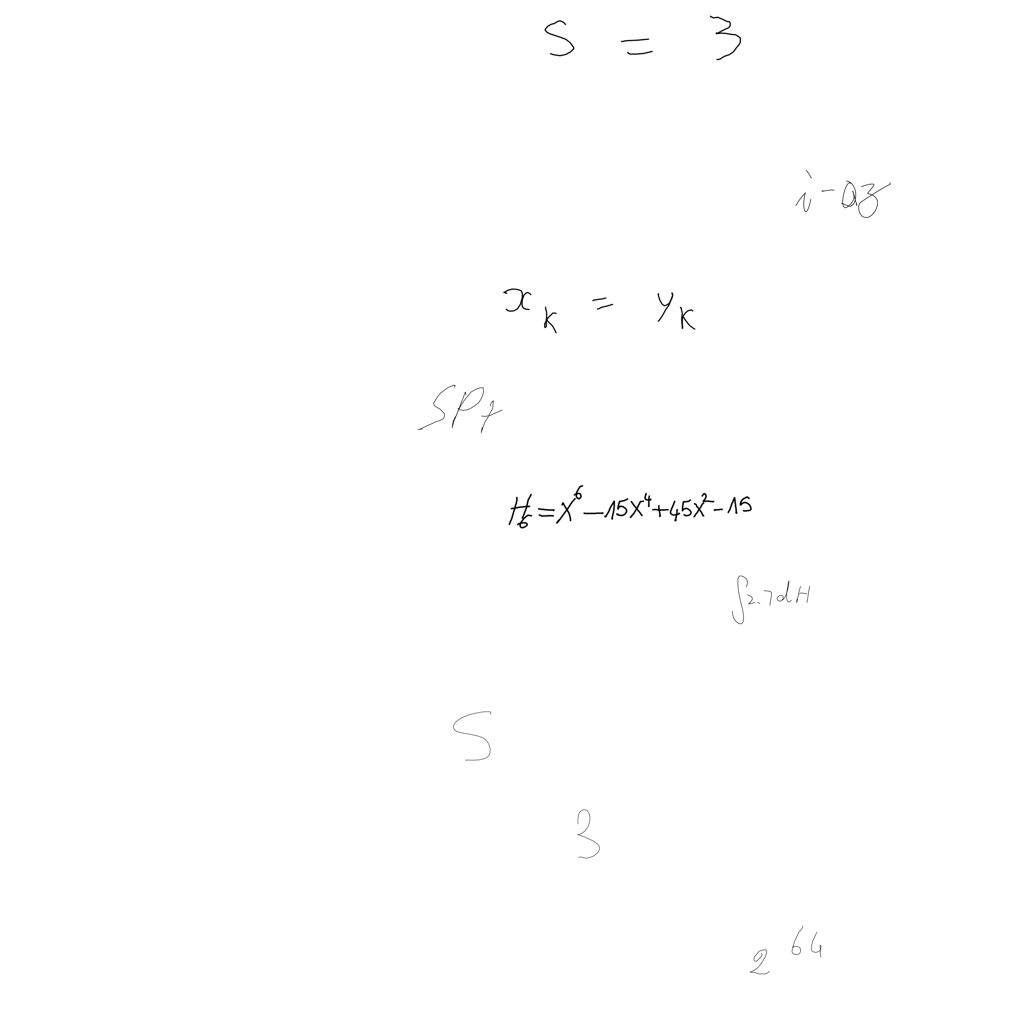 s = 3
i - az
x_k = y_k
SP+
H_6 = X^6 - 15X^4 + 45X^2 - 15
∫2.7dH
S
3
2^64